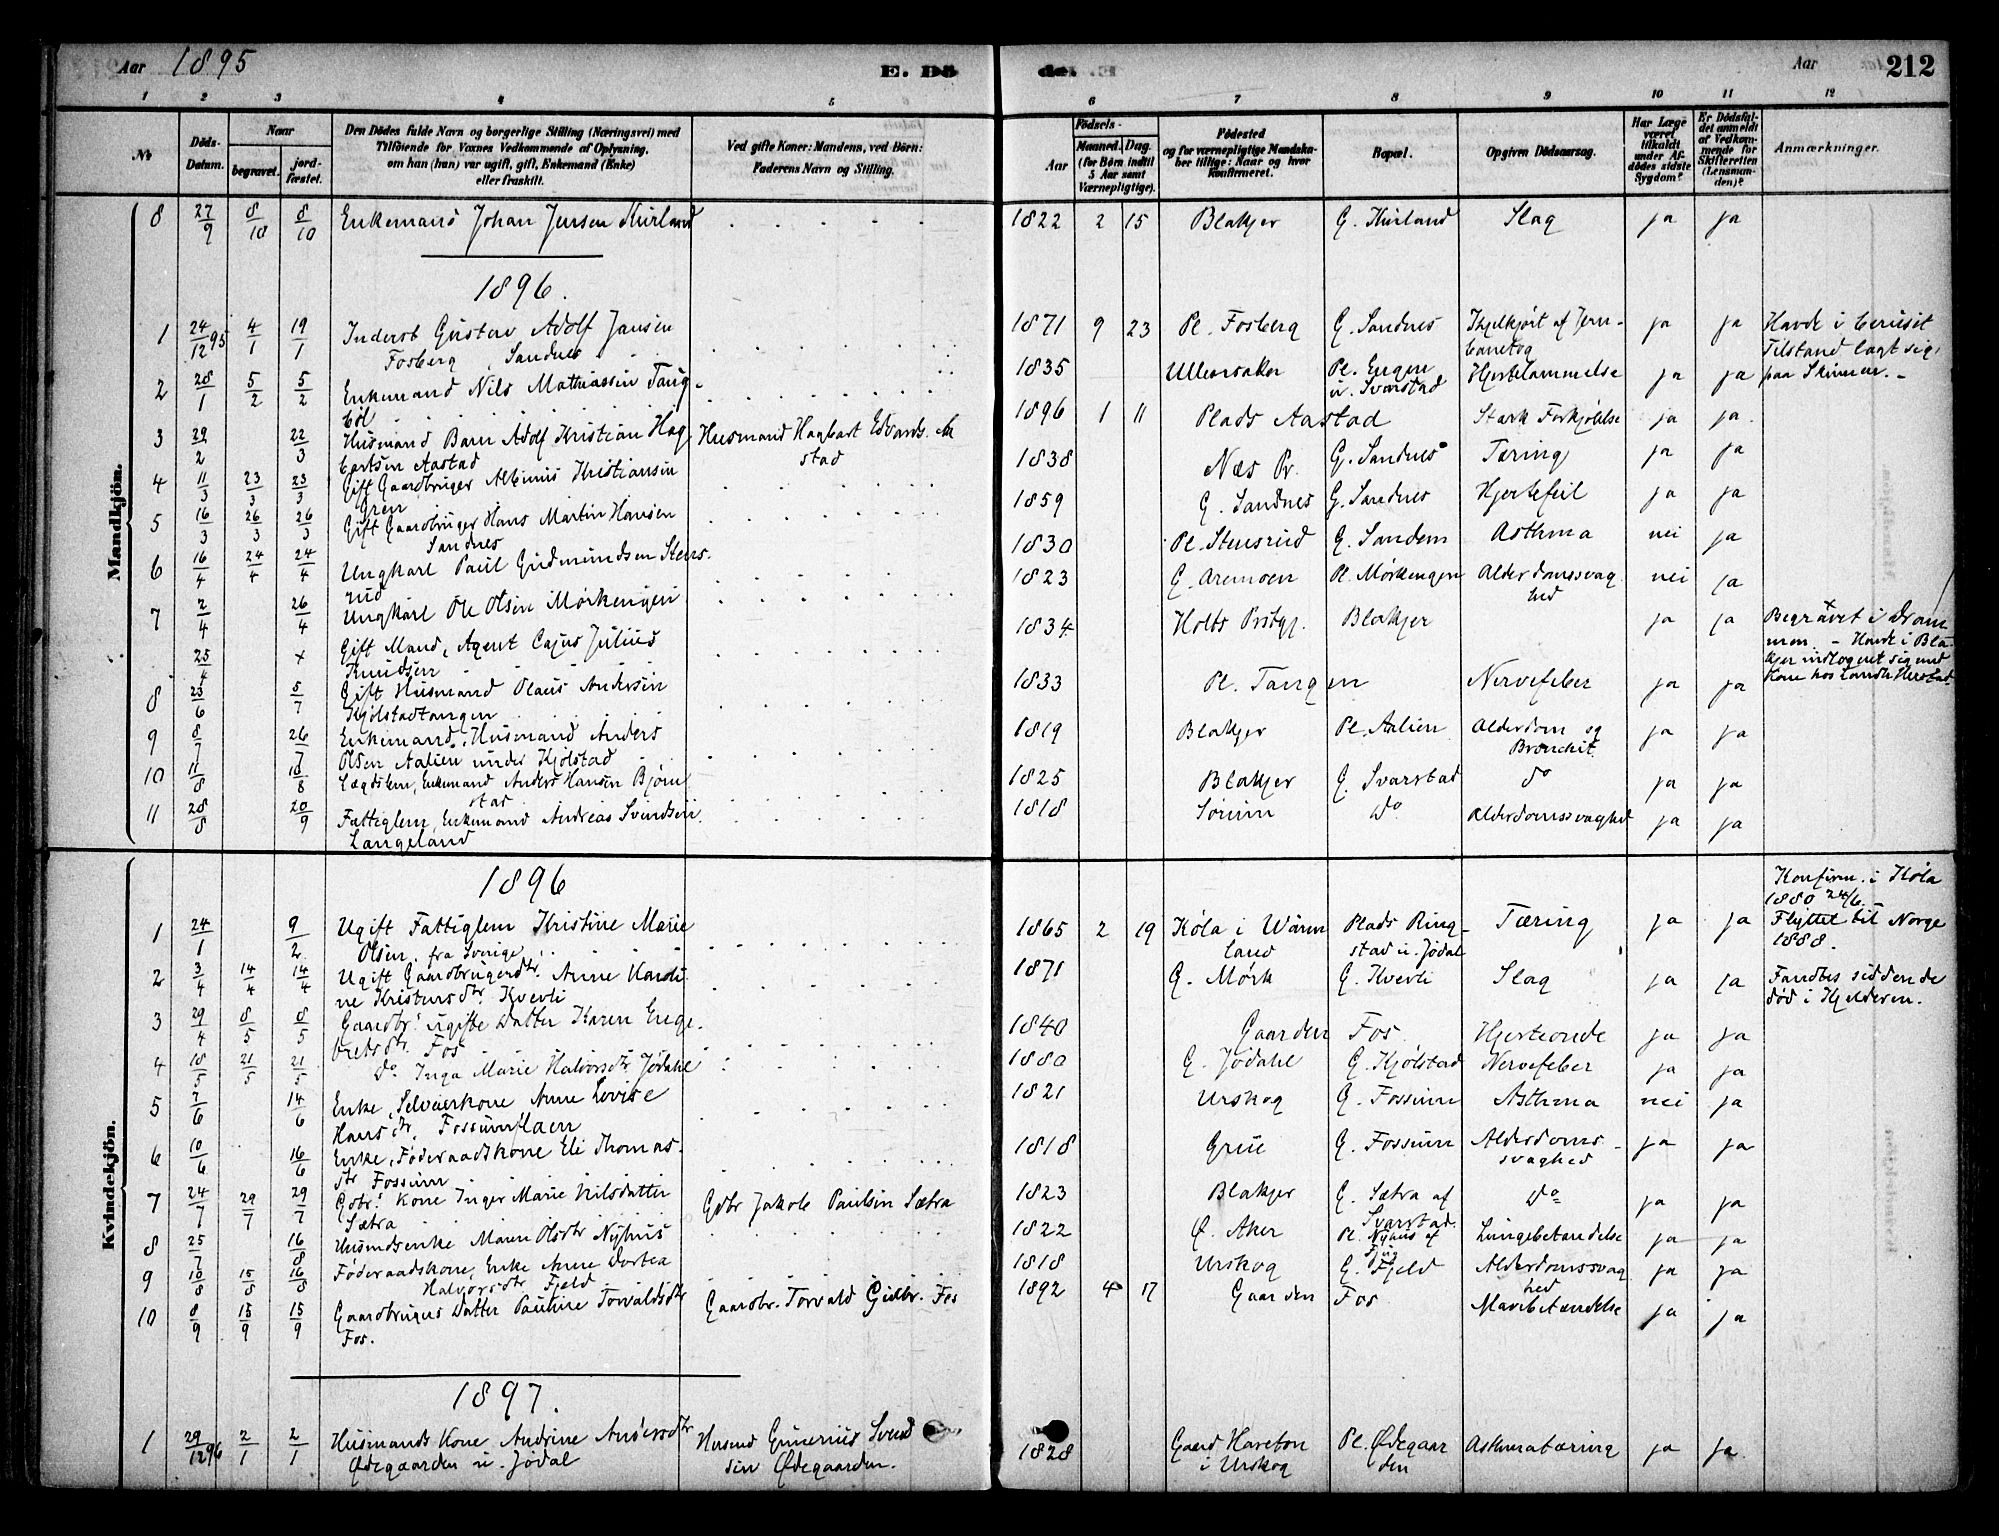 Aar 1895
E. Dö
de. 
Aar
212
1 2 3 4 5 6 7 8 9 10 11 12
№
Döds-Datum.
Naar
begravet.
jord-fæstet.
Den Dödes fulde Navn og borgerlige Stilling (Næringsvei) med
Tilföiende for Voxnes Vedkommende af Oplysning,
om han (hun) var ugift, gift, Enkemand (Enke)
eller fraskilt.
Ved gifte Koner: Mandens, ved Börn:
Faderens Navn og Stilling.
Födsels-
Aar
Maaned. Dag.
(for Börn indtil
5 Aar samt
Værnepligtige).
Födested
og for værnepligtige Mandska-
ber tillige: Naar og hvor
Konfirmeret.
Bopæl.
Opgiven Dödsaarsag.
Har Læge
været
tilkaldt
under Af-
dödes sidste
Sygdom?
Er Dödsfal-
det anmeldt
af Vedkom-
mende for
Skifteretten
(Lensman-
den)?
Anmærkninger.
Mandkjön.
8 27/9 8/10 8/10 Enkemand Johan Jensen Kurland 1822 2 15 Blakjer G. Kurland Slag ja ja
1896.
1 24/12 95 4/1 19/1 Inderst Gustav Adolf Jansen 1871 9 23 Pl. Fosberg G. Sandnes Ihjelkjørt af Jern- ja ja Havde i beruset
Fosberg, Sandnes banetog Tilstand lagt sig
2 28/1 5/2 5/2 Enkemand Nils Mathiassen Tang- 1835 Ullensaker Pl. Engen u. Svarstad Hjertelammelse ja ja paa Skinner. -
bøl
3 29/2 22/3 Husmand Barn Adolf Kristian Hag- Husmand Hagbart Edvards. Aa 1896 1 11 Plads Aastad Stærk Forkjølelse ja ja
bartsen Aastad stad
4 11/3 23/3 23/3 Gift Gaardbruger Albinus Kristiansen 1838 Næs Pr. G. Sandnes Tæring ja ja
Gren
5 16/3 26/3 26/3 Gift Gaardbruger Hans Martin Hansen 1859 G. Sandnes G. Sandnes Hjertefeil ja ja
Sandnes
6 16/4 24/4 24/4 Ungkarl Paul Gudmundsen Stens- 1830 Pl. Stensrud G. Sandem Asthma nei ja
rud
7 2/4 26/4 Ungkarl Ole Olsen Mørkengen 1823 G. Aremoen Pl. Mørkengen Alderdomssvag- nei ja
hed
25/4 x Gift Mand, Agent Cajus Julius 1834 Holts Prstgj. Blakjer ja ja Begravet i Dram
Knudsen men. - Havde i Bla-
kjer indlogeret sig med
Kone hos Landh. Herstad
8 23/6 5/7 Gift Husmand Olaus Andersen 1833 Pl. Tangen Nervefeber ja ja
Kjølstadtangen
9 8/7 26/7 Enkemand, Husmand Anders 1819 Blakjer Pl. Aalien Alderdom og ja ja
Olsen Aalien under Kjølstad Bronchit
10 11/8 18/8 Lægdslem, Enkemand Anders Hansen Bjørn 1825 Blakjer G. Svarstad do ja ja
stad
11 28/8 20/9 Fattiglem, Enkemand Andreas Svendsen 1818 Sørum do Alderdomssvaghed ja ja
Langeland
Kvindekjön.
1896
Konfirm. i Køla
1880 24/6.
1 24/1 9/2 Ugift Fattiglem Kristine Marie 1865 2 19 Køla i Wärm Plads Ring- Tæring ja ja Flyttet til Norge
Olsen, fra Sverige land stad u. Jødal 1888.
2 3/4 14/4 14/4 Ugift Gaardbrugerdtr. Anne Karoli- 1871 G. Mørk G. Kvevli Slag ja ja Fandtes siddende
ne Kristensdtr. Kvevli død i Kjelderen.
3 29/4 8/5 8/5 Gaardbr.s ugifte Datter Karen Enge- 1840 Gaarden Fos Hjerteonde ja ja
bretsdtr. Fos
4 18/5 21/5 21/5 do Inga Marie Halvorsdtr. Jødahl 1880 G. Jødahl G. Kjølstad Nervefeber ja ja
5 7/6 14/6 Enke, Selveierkone Anne Lovise 1821 Urskog G. Fossum Asthma nei ja
Hansdtr. Fossumflaen
6 10/6 16/6 Enke, Føderaadskone Eli Thomas- 1818 Grue G. Fossum Alderdoms- ja ja
dtr Fossum svaghed
7 24/7 29/7 29/7 Gdbr.s Kone Inger Marie Nilsdatter Gdbr Jakob Paulsen Sætra 1823 Blakjer G. Sætra af do ja ja
Sætra Svarstad
8 25/7 16/8 Husmdsenke Maren Olsdtr Nyhus 1822 Ø. Aker Pl. Nyhus af Lungebetændelse ja ja
9 10/8 15/8 16/8 Føderaadskone, Enke Anne Dortea 1818 Urskog G. Fjeld Alderdomssvag ja ja
Halvorsdtr Fjeld hed
10 8/9 15/9 15/9 Gaardbrugers Datter Pauline Torvaldsdtr Gaardbr. Torvald Gulbr. Fos 1892 4 17 Gaarden Fos Mavebetændelse ja ja
Fos.
1897.
1 29/12 96 2/1 2/1 Husmands Kone Andrine Andersdtr Husmd Gunerius Svend 1828 Gaard Hareton Pl. Ødegaar Asthmatæring ja ja
Ødegaarden u. Jødal sen Ødegaarden. i Urskog den